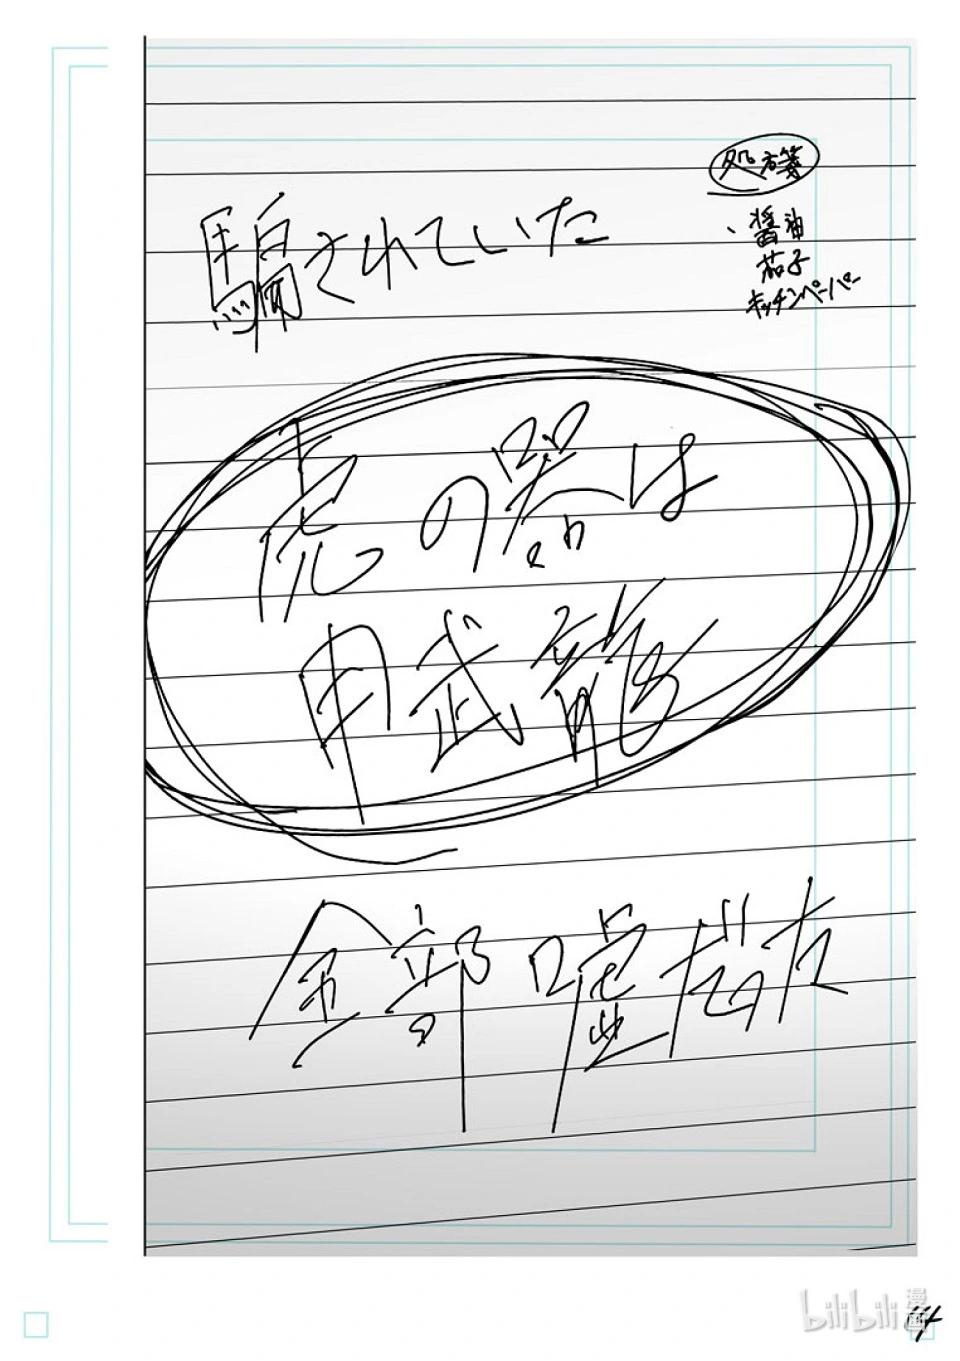 処方箋
、醤油
茄子
キッチンペーパー
騙されていた
虎の器は
甲武龍
全部嘘だった
bilibili漫画
14